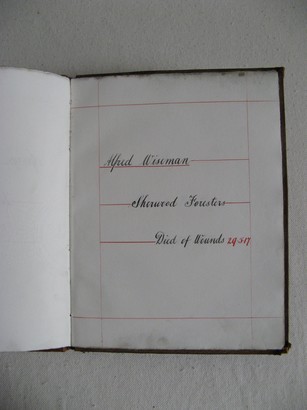 Alfred Wiseman
Sherwood Foresters
Died of Wounds 29.5.17